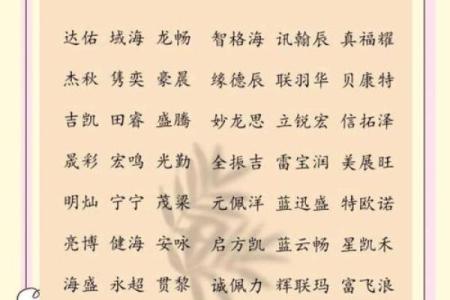 达佑 域海 龙畅 智格海 讯翰辰 真福耀
杰秋 隽奕 豪晨 缘德辰 联羽华 贝康特
吉凯 田睿 盛腾 妙龙思 立锐宏 信拓泽
晟彩 宏鸣 光勤 全振吉 雷宝润 美展旺
明灿 宁宁 茂梁 元佩洋 蓝迅盛 特欧诺
亮博 健海 安咏 启方凯 蓝云畅 星凯禾
海盛 永超 贯黎 诚佩力 辉联玛 富飞浪